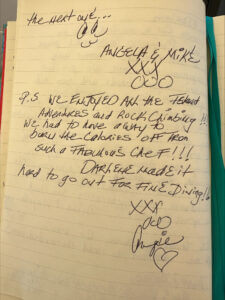 the next one...
ANGELA & MIKE
XXX
OOO
P.S WE ENJOYED All the
Adventures and Rock Climbing!!
WE had to have a way to
burn the CALORIES OFF FROM
such a FABulous CHEF!!!
DARLENE MADE it
hard to go out FOR FINE Dining!!
XXX
OOO
Angie